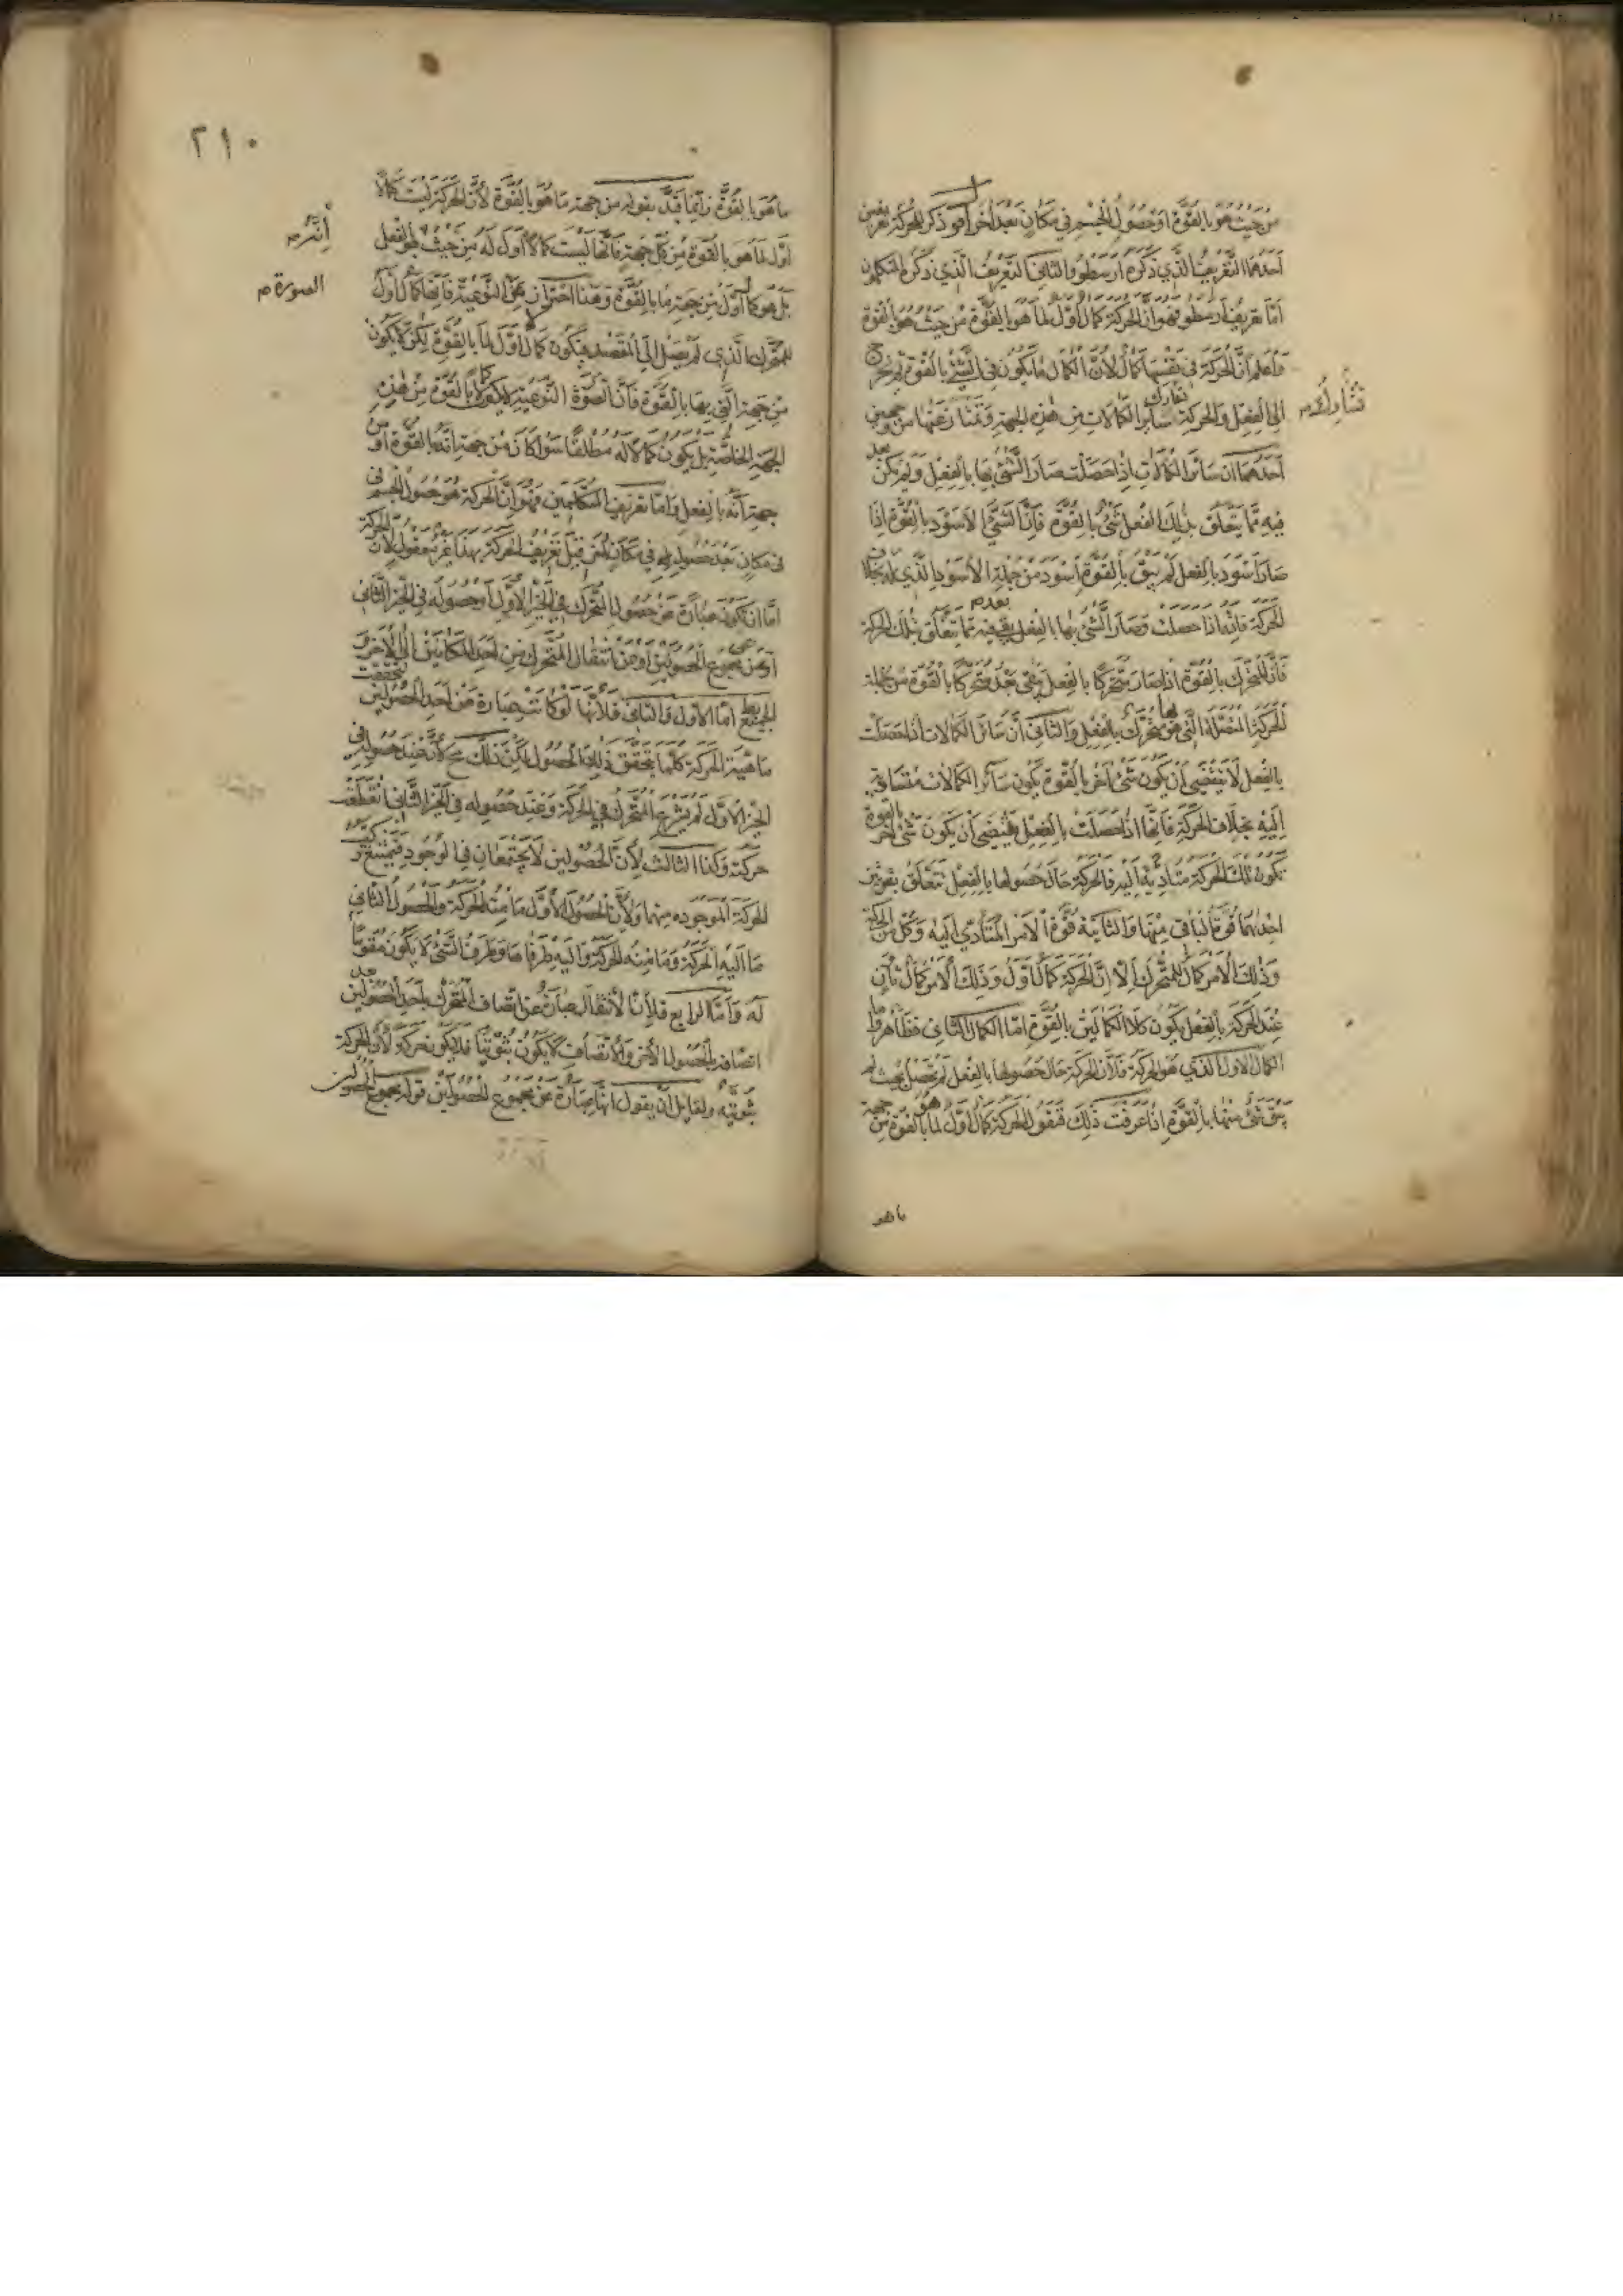 من حيث هو بالقوة او حصول الجسم في مكان بعد آخر أقول ذكر للحركة تعريفين
احدهما التعريف الذي ذكره ارسطو والثاني التعريف الذي ذكره المتكلمون
اما تعريف ارسطو فهو ان الحركة كمال اول لما هو بالقوة من حيث هو بالقوة
واعلم ان الحركة في نفسها كمال لان الكمال ما يكون في الشئ بالقوة ثم يخرج
الى الفعل والحركة تشارك سائر الكمالات من هذه الجهة وتمتاز عنها من وجهين
احدهما ان سائر الكمالات اذا حصلت صار الشئ بها بالفعل ولم يكن بعد
فيه مما يتعلق بذلك الفعل شئ بالقوة فان الشئ الاسود بالقوة اذا
صار اسود بالفعل لم يبق بالقوة اسود من جملة الاسود الذي له بخلاف
الحركة فانه اذا حصلت وصار الشئ بها بالفعل بقي فيه مما يتعلق بتلك الحركة
فان المتحرك بالقوة اذا صار متحركا بالفعل بقي بعد متحركا بالقوة من جملة
الحركة المتصلة التي هو بها متحرك بالفعل والثاني ان سائر الكمالات اذا حصلت
بالفعل لا يقتضي ان يكون شئ آخر بالقوة يكون سائر الكمالات
اليه بخلاف الحركة فانها اذا حصلت بالفعل يقتضي ان يكون شئ آخر بالقوة
تكون تلك الحركة متأدية اليه فالحركة حال حصولها بالفعل تتعلق بقوتين
احدهما قوة الباقي منها والثانية قوة الامر المتأدي اليه وكل من الحركة
وذلك الامر كمال للمتحرك الا ان الحركة كمال اول وذلك الامر كمال ثان
عند الحركة بالفعل يكون كلا الكمالين بالقوة اما الكمال الثاني فظاهر واما
الكمال الاول الذي هو الحركة فلان الحركة حال حصولها بالفعل لم تحصل بحيث لم
يبق شئ منها بالقوة اذا عرفت ذلك فنقول الحركة كمال اول لما هو بالقوة من جهة
ما هو
٢١٠
ما هو بالقوة وانما قيد بقوله من جهة ما هو بالقوة لان الحركة ليست كمالا
اول لما هو بالقوة من كل جهة فانها ليست كمالا اول له من حيث هو بالفعل
بل هو كمال اول من جهة ما بالقوة وهذا احتراز عن النوعية فانها كمال اول
الصورة
للمتحرك الذي لم يصل الى المقصد فيكون كمال اول لما بالقوة لكن لا يكون
من جهة التي بها بالقوة فان الصورة النوعية لا يكون كمالا لما بالقوة من هذه
الجهة الخاصة بل يكون كمالا له مطلقا سواء كان من جهة انه بالقوة او من
جهة انه بالفعل واما تعريف المتكلمين فهو ان الحركة هو حصول الجسم في
في مكان بعد حصوله في مكان آخر قيل تعريف الحركة بهذا غير معقول لان الحركة
اما ان تكون عبارة عن حصول المتحرك في الحيز الاول او حصوله في الحيز الثاني
او عن مجموع الحصولين او عن انتقال المتحرك من احد المكانين الى الآخر
اما الاول والثاني فلانها لو كانت عبارة عن احد الحصولين لتحققت
ماهية الحركة كلما يتحقق ذلك الحصول لكن ذلك مح لان عند حصوله في
الحيز الاول لم يشرع المتحرك في الحركة وعند حصوله في الحيز الثاني انقطعت
حركته وكذا الثالث لان الحصولين لا يجتمعان في الوجود فيمتنع
الحركة الموجوده منهما ولان الحصول الاول ما منه الحركة والحصول الثاني
ما اليه الحركة وما منه الحركة واليه طرفاها وطرف الشئ لا يكون مقوما
له واما الرابع فلان الانتقال عبارة عن اتصاف المتحرك باحد الحصولين بعد
اتصافه بالحصول الآخر والاتصاف لا يكون ثبوتيا فلا يكون حركة لان الحركة
ثبوتية ولقايل ان يقول انها عبارة عن مجموع الحصولين قوله مجموع الحصولين